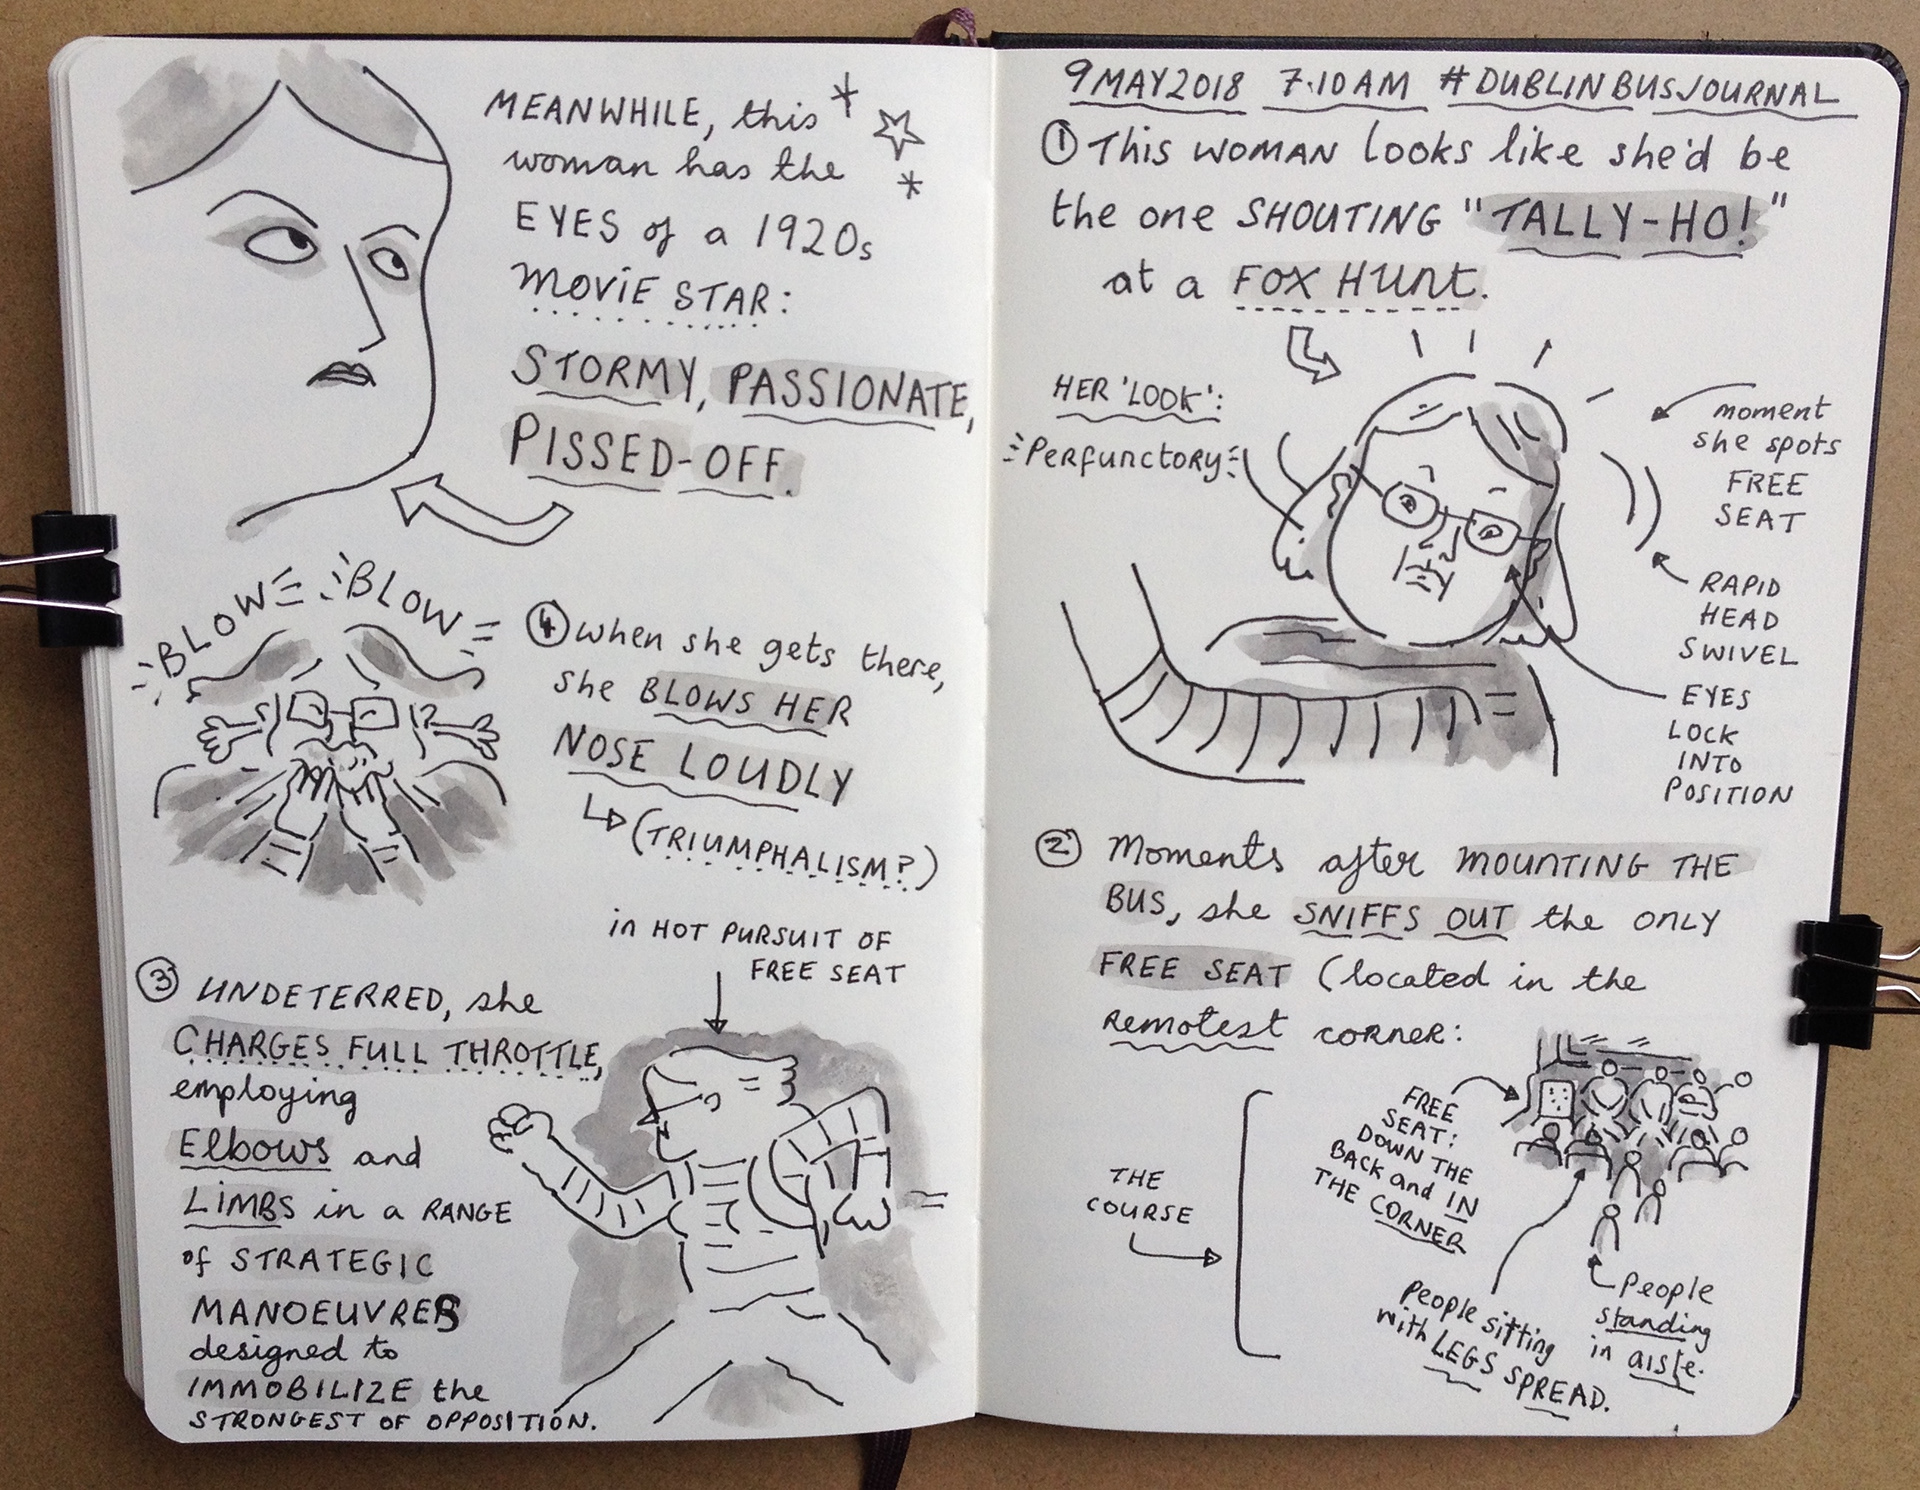 9 MAY 2018 7.10AM #DUBLINBUSJOURNAL
① This WOMAN looks like she'd be
the one SHOUTING "TALLY-HO!"
at a FOX HUNT.
HER 'LOOK':
Perfunctory
moment
she spots
FREE
SEAT
RAPID
HEAD
SWIVEL
EYES
LOCK
INTO
POSITION
② Moments after MOUNTING THE
BUS, she SNIFFS OUT the ONLY
FREE SEAT (located in the
remotest corner:
THE
COURSE
FREE
SEAT:
DOWN THE
BACK and IN
THE CORNER
People sitting
with LEGS SPREAD.
People
standing
in aisle.
③ UNDETERRED, she
CHARGES FULL THROTTLE,
employing
Elbows and
LIMBS in a RANGE
of STRATEGIC
MANOEUVRES
designed to
IMMOBILIZE the
STRONGEST OF OPPOSITION.
in HOT PURSUIT OF
FREE SEAT
④ when she gets there,
she BLOWS HER
NOSE LOUDLY
(TRIUMPHALISM?)
BLOW BLOW
MEANWHILE, this
woman has the
EYES of a 1920s
MOVIE STAR:
STORMY, PASSIONATE,
PISSED-OFF.